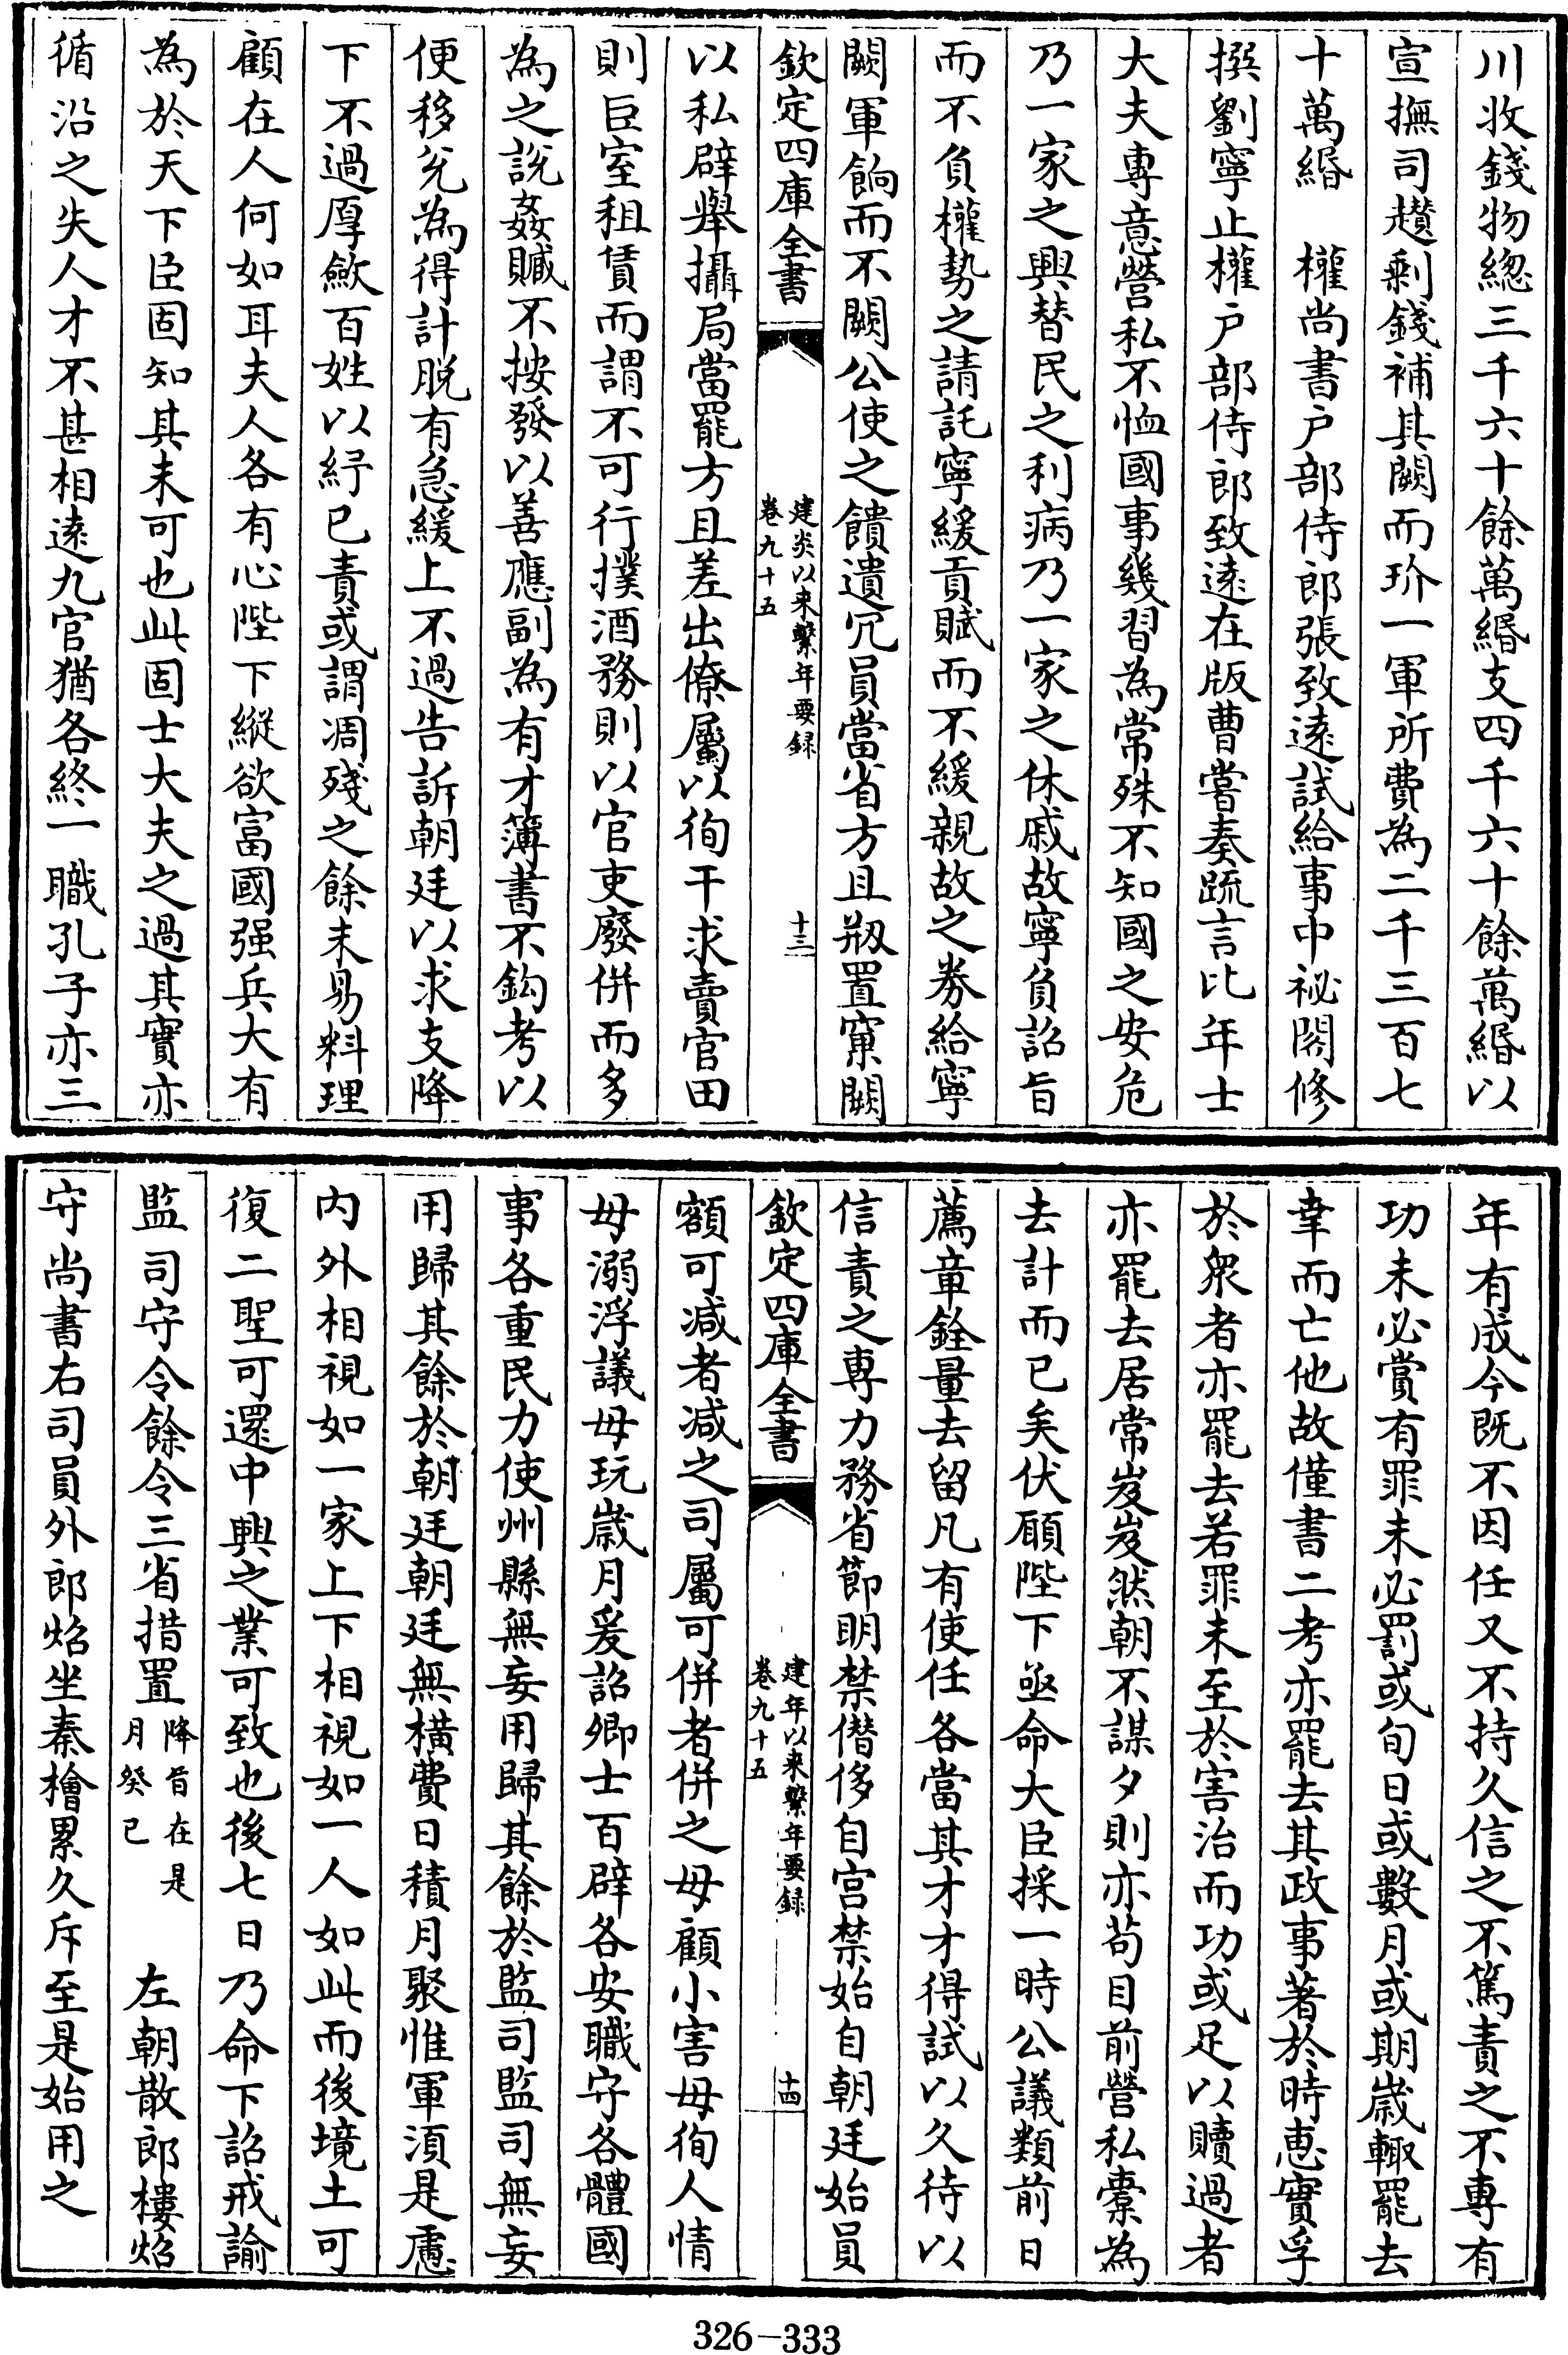 川收錢物總三千六十餘萬緡支四千六十餘萬緡以
宣撫司趲剰錢補其闕而玠一軍所費為二千三百七
十萬緡　權尚書户部侍郎張致遠試給事中祕閣修
撰劉寧止權户部侍郎致遠在版曹嘗奏疏言比年士
大夫專意營私不恤國事幾習為常殊不知國之安危
乃一家之興替民之利病乃一家之休戚故寧負詔旨
而不負權勢之請託寧緩貢賦而不緩親故之券給寧
闕軍餉而不闕公使之饋遺冗員當省方且剏置窠闕
欽定四庫全書
建炎以来繫年要録
卷九十五
十三
以私辟舉攝局當罷方且差出僚屬以徇干求賣官田
則巨室租賃而謂不可行撲酒務則以官吏廢併而多
為之説姦贓不按發以善應副為有才簿書不鈎考以
便移兊為得計脱有急緩上不過告訴朝廷以求支降
下不過厚斂百姓以紓已責或謂凋殘之餘未易料理
顧在人何如耳夫人各有心陛下縱欲富國强兵大有
為於天下臣固知其未可也此固士大夫之過其實亦
循沿之失人才不甚相遠九官猶各終一職孔子亦三
年有成今既不因任又不持久信之不篤責之不專有
功未必賞有罪未必罰或旬日或數月或期歲輙罷去
幸而亡他故僅書二考亦罷去其政事著於時恵實孚
於衆者亦罷去若罪未至於害治而功或足以贖過者
亦罷去居常岌岌然朝不謀夕則亦苟目前營私槖為
去計而已矣伏願陛下亟命大臣採一時公議類前日
薦章銓量去留凡有使任各當其才才得試以久待以
信責之專力務省節明禁僭侈自宫禁始自朝廷始員
欽定四庫全書
建年以来繫年要録
卷九十五
十四
額可減者減之司屬可併者併之毋顧小害毋徇人情
毋溺浮議毋玩歲月爰詔卿士百辟各安職守各體國
事各重民力使州縣無妄用歸其餘於監司監司無妄
用歸其餘於朝廷朝廷無横費日積月聚惟軍湏是慮
内外相視如一家上下相視如一人如此而後境土可
復二聖可還中興之業可致也後七日乃命下詔戒諭
監司守令餘令三省措置降旨在是月癸已　左朝散郎樓炤
守尚書右司員外郎炤坐秦檜累久斥至是始用之
326-333